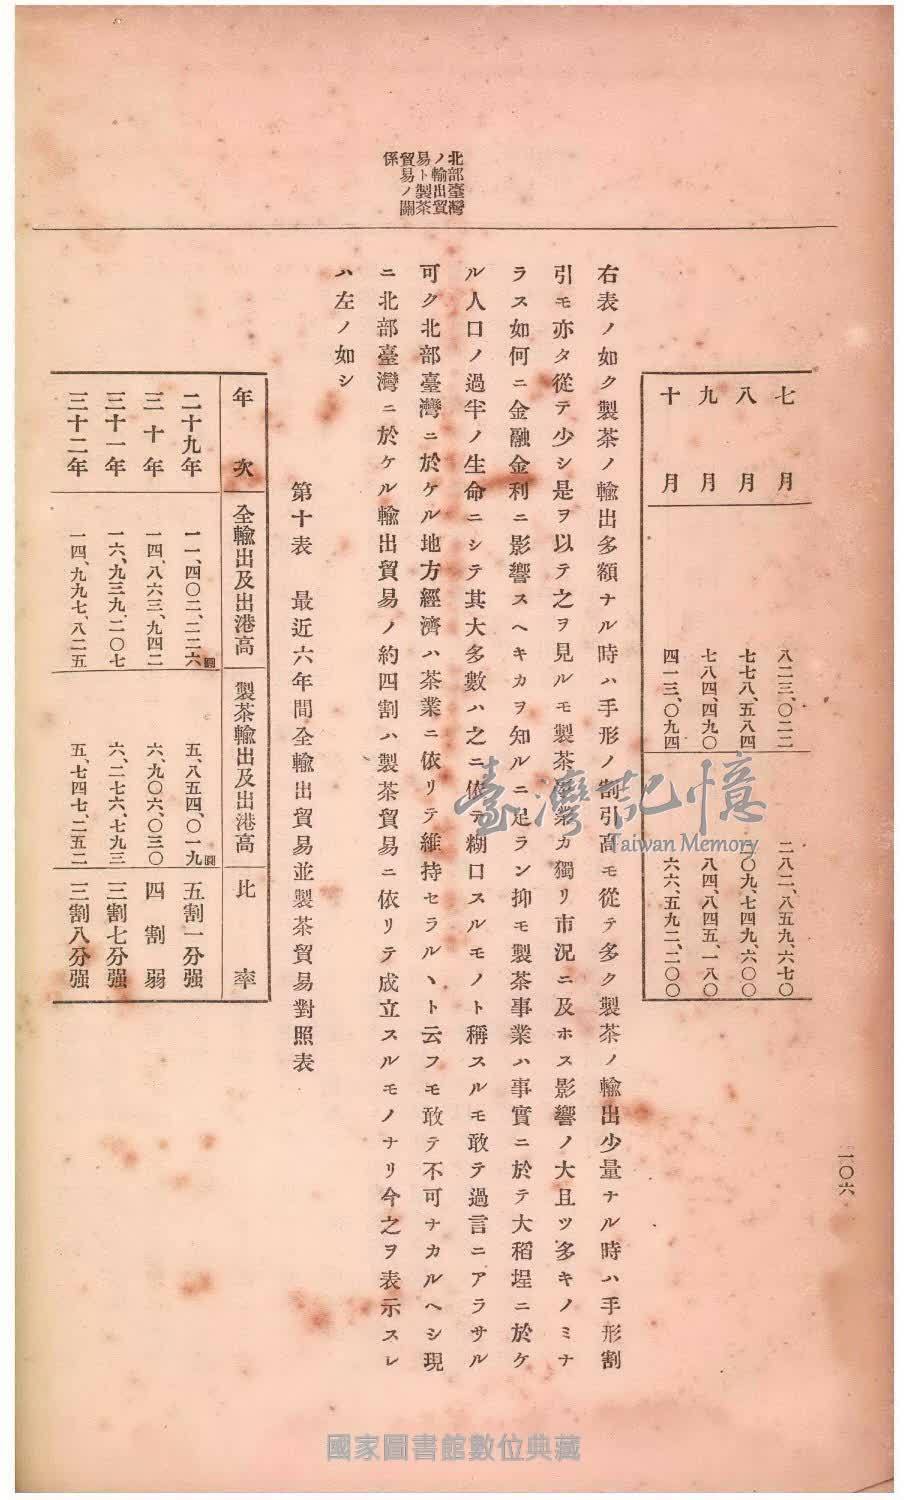 一〇六
七月 八二三、〇二二 二八二、八五九、六七〇
八月 七七八、五八四 〇九、七四九、六〇〇
九月 七八四、四九〇 八四、八四五、一八〇
十月 四一三、〇九四 六六、五九二、二〇〇
北部臺灣
ノ輸出貿
易ト製茶
貿易ノ關
係
右表ノ如ク製茶ノ輸出多額ナル時ハ手形ノ割引高モ從テ多ク製茶ノ輸出少量ナル時ハ手形割
引モ亦タ從テ少シ是ヲ以テ之ヲ見ルモ製茶 業カ獨リ市況ニ及ホス影響ノ大且ツ多キノミナ
ラス如何ニ金融金利ニ影響スヘキカヲ知ルニ足ラン抑モ製茶事業ハ事實ニ於テ大稻埕ニ於ケ
ル人口ノ過半ノ生命ニシテ其大多數ハ之ニ依テ糊口スルモノト稱スルモ敢テ過言ニアラサル
可ク北部臺灣ニ於ケル地方經濟ハ茶業ニ依リテ維持セラルヽト云フモ敢テ不可ナカルヘシ現
ニ北部臺灣ニ於ケル輸出貿易ノ約四割ハ製茶貿易ニ依リテ成立スルモノナリ今之ヲ表示スレ
ハ左ノ如シ
第十表 最近六年間全輸出貿易並製茶貿易對照表
年次 全輸出及出港高 製茶輸出及出港高 比率
二十九年 一一、四〇二、二二六圓 五、八五四、〇一九圓 五割一分强
三十年 一四、八六三、九四二 六、九〇六、〇三〇 四割弱
三十一年 一六、九三九、二〇七 六、二七六、七九三 三割七分强
三十二年 一四、九九七、八二五 五、七四七、二五二 三割八分强
臺灣記憶
Taiwan Memory
國家圖書館數位典藏